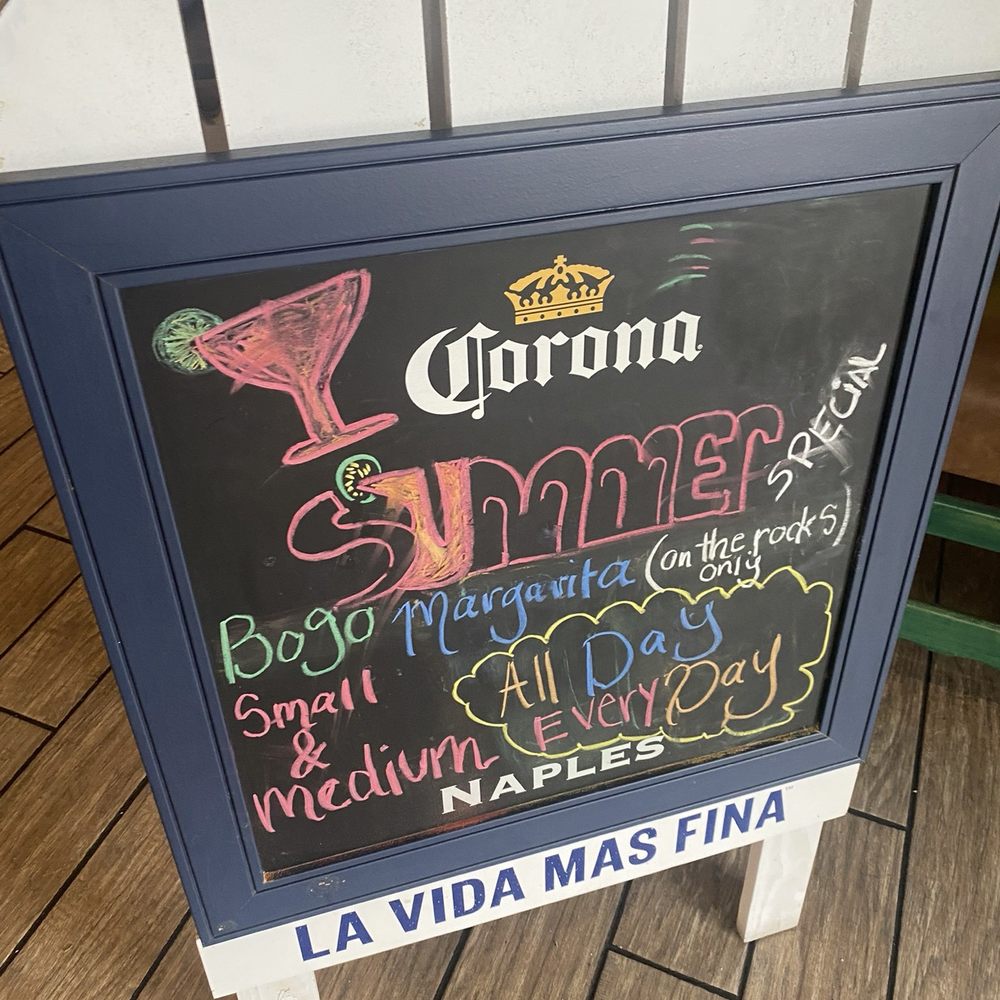 Corona
SUMMER SPECIAL
Bogo Margarita (on the rocks
only
Small
&
medium
All Day
Every Day
NAPLES
LA VIDA MAS FINA™